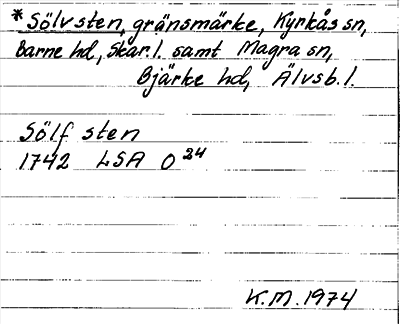 * Sölvsten, gränsmärke, Kyrkås sn,
Barne hd, Skar. l. samt Magra sn,
Bjärke hd, Älvsb. l.
Sölf sten
1742 LSA O 24
K.M. 1974